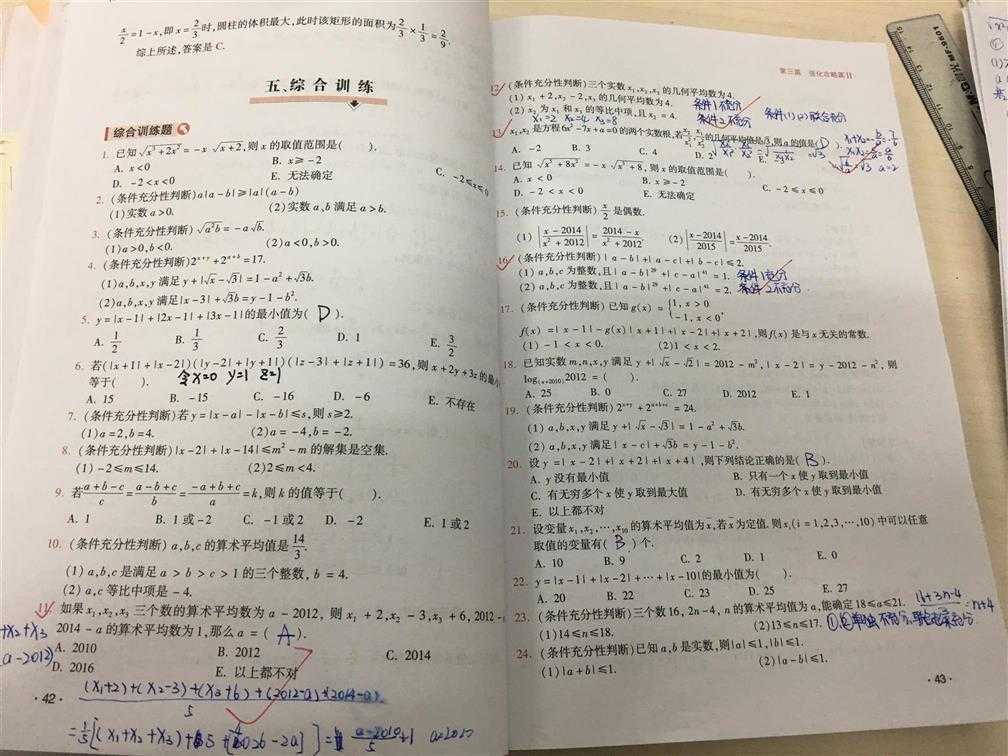 x/2=1-x,即x=2/3时,圆柱的体积最大,此时该矩形的面积为2/3×1/3=2/9.
综上所述,答案是C.
五、综合训练
综合训练题
1. 已知√(x³+2x²)=-x√(x+2),则x的取值范围是( ).
A. x<0 B. x≥-2 C. -2≤x≤0
D. -2<x<0 E. 无法确定
2. (条件充分性判断)a|a-b|≥|a|(a-b)
(1)实数a>0. (2)实数a,b满足a>b.
3. (条件充分性判断)√(a²b)=-a√b.
(1)a>0,b<0. (2)a<0,b>0.
4. (条件充分性判断)2^(x+y)+2^(a+b)=17.
(1)a,b,x,y满足y+|√x-√3|=1-a²+√3b.
(2)a,b,x,y满足|x-3|+√3b=y-1-b².
5. y=|x-1|+|2x-1|+|3x-1|的最小值为( D ).
A. 1/2 B. 1/3 C. 2/3 D. 1 E. 3/2
6. 若(|x+1|+|x-2|)(|y-2|+|y+1|)(|z-3|+|z+1|)=36,则x+2y+3z的最小
等于( ). 令x=0 y=1 z=1
A. 15 B. -15 C. -16 D. -6 E. 不存在
7. (条件充分性判断)若y=|x-a|-|x-b|≤s,则s≥2.
(1)a=2,b=4. (2)a=-4,b=-2.
8. (条件充分性判断)|x-2|+|x-14|≤m²-m的解集是空集.
(1)-2≤m≤14. (2)2≤m<4.
9. 若(a+b-c)/c=(a-b+c)/b=(-a+b+c)/a=k,则k的值等于( ).
A. 1 B. 1或-2 C. -1或2 D. -2 E. 1或2
10. (条件充分性判断) a,b,c的算术平均值是14/3.
(1) a,b,c是满足a>b>c>1的三个整数, b=4.
(2) a,c等比中项是-4.
11. 如果x₁,x₂,x₃三个数的算术平均数为a-2012, 则x₁+2,x₂-3,x₃+6,2012-
2014-a的算术平均数为1,那么a=( A ).
+x₂+x₃
a-2012)
A. 2010 B. 2012 C. 2014
D. 2016 E. 以上都不对
(x₁+2)+(x₂-3)+(x₃+6)+(2012-a)+(2014-a)
5
·42·
第三篇 强化攻略篇 II
(条件充分性判断)三个实数x₁,x₂,x₃的几何平均数为4.
(1) x₁+2,x₂-2,x₃的几何平均数为4. 条件1不充分
(2) x₂为x₁和x₃的等比中项,且x₂=4. 条件2不充分 条件(1)(2)联合充分
x₁=2 x₂=4 x₃=8
13. x₁,x₂是方程6x²-7x+a=0的两个实数根,若x₂/x₁²,x₁/x₂²的几何平均值是√3,则a的值是( D ).
A. -2 B. 3 C. 4 D. 2
14. 已知√(x³+8x²)=-x√(x+8),则x的取值范围是( ).
A. x<0 B. x≥-2 C. -2≤x≤0
D. -2<x<0 E. 无法确定
15. (条件充分性判断)x/2是偶数.
(1) |(x-2014)/(x²+2012)|=(2014-x)/(x²+2012). (2) |(x-2014)/2015|=(x-2014)/2015.
16. (条件充分性判断)|a-b|+|a-c|+|b-c|≤2.
(1) a,b,c为整数,且|a-b|²⁰+|c-a|⁴¹=1. 条件1充分
(2) a,b,c为整数,且|a-b|²⁰+|c-a|⁴¹=2. 条件2不充分
17. (条件充分性判断)已知g(x)={1,x>0
-1,x<0,
f(x)=|x-1|-g(x)|x+1|+|x-2|+|x+2|,则f(x)是与x无关的常数.
(1) -1<x<0. (2)1<x<2.
18. 已知实数m,n,x,y满足y+|√x-√2|=2012-m²,|x-2|=y-2012-n², 则
log₍ₓ₊₂₀₁₀₎2012=( ).
A. 25 B. 0 C. 27 D. 2012 E. 1
19. (条件充分性判断)2^(x+y)+2^(a+b+c)=24.
(1) a,b,x,y满足y+|√x-√3|=1-a²+√3b.
(2) a,b,x,y满足|x-c|+√3b=y-1-b².
20. 设y=|x-2|+|x+2|+|x+4|,则下列结论正确的是( B ).
A. y没有最小值 B. 只有一个x使y取到最小值
C. 有无穷多个x使y取到最大值 D. 有无穷多个x使y取到最小值
E. 以上都不对
21. 设变量x₁,x₂,…,x₁₀的算术平均值为x̄,若x̄为定值.则xᵢ(i=1,2,3,…,10)中可以任意
取值的变量有( B )个.
A. 10 B. 9 C. 2 D. 1 E. 0
22. y=|x-1|+|x-2|+…+|x-10|的最小值为( ).
A. 20 B. 22 C. 23 D. 25 E. 27
23. (条件充分性判断)三个数16,2n-4, n的算术平均值为a,能确定18≤a≤21.
(1)14≤n≤18. (2)13≤n≤17.
24. (条件充分性判断)已知a,b是实数,则|a|≤1,|b|≤1.
(1)|a+b|≤1. (2)|a-b|≤1.
·43·